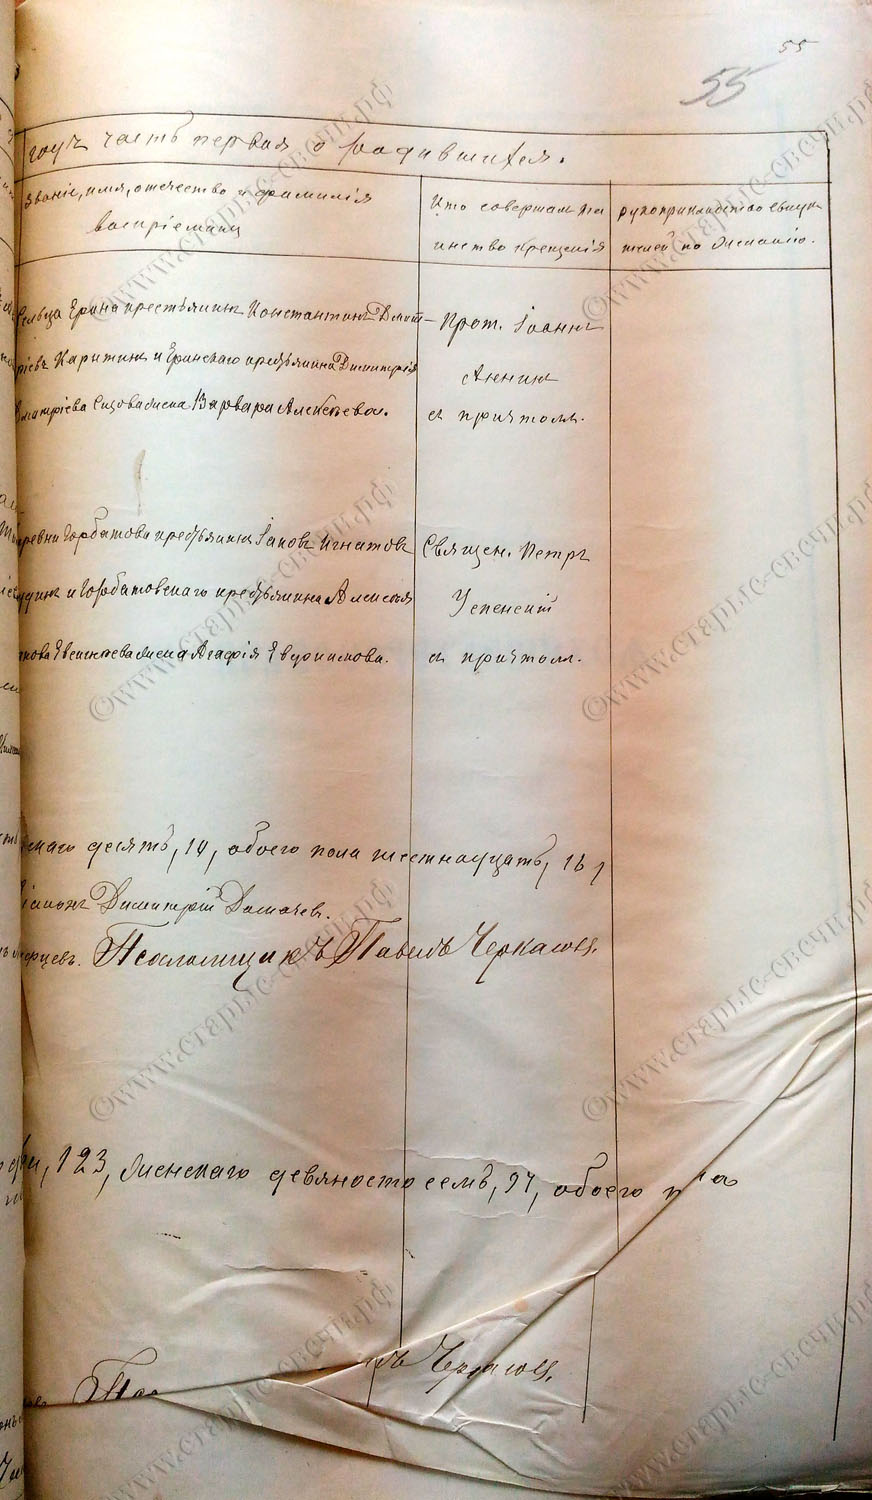 55
55
годъ часть первая о родившихся.
Званіе, имя, отечество и фамилія
воспріемниковъ
Кто совершалъ та
инство крещенія
рукоприкладство свидѣ
телей по желанію.
Сельца Ерина крестьянинъ Константинъ Дмит-
ріевъ и Еринскаго крестьянина Димитрія
Дмитріева жена Варвара Алексѣева.
Прот. Іоаннъ
Аннинъ
съ причтомъ.
деревни Горбатова крестьянинъ Іаковъ Игнатовъ
и Горбатовскаго крестьянина Алексѣя
жена Агафія Евдокимова.
Священ. Петръ
Успенскій
съ причтомъ.
десять, 10, обоего пола шестнадцать, 16,
Діаконъ Димитрій
Псаломщикъ Павелъ Черкасовъ.
123, женскаго девяносто семь, 97, обоего пола
Черкасовъ.
©www.старые-свечи.рф